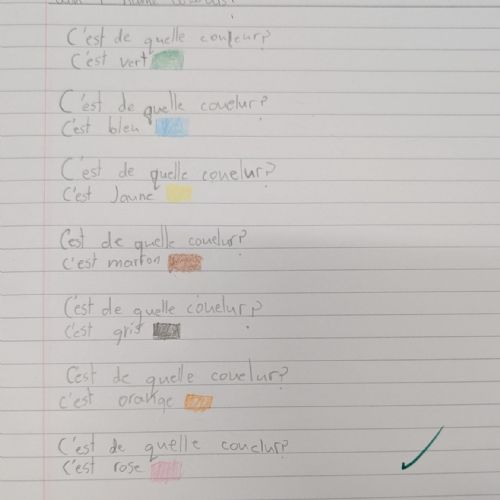 C'est de quelle couleur?
C'est vert
C'est de quelle couelur?
C'est bleu
C'est de quelle couelur?
C'est Jaune
C'est de quelle couelur?
C'est marron
C'est de quelle couelur?
C'est gris
C'est de quelle couelur?
C'est orange
C'est de quelle couelur?
C'est rose